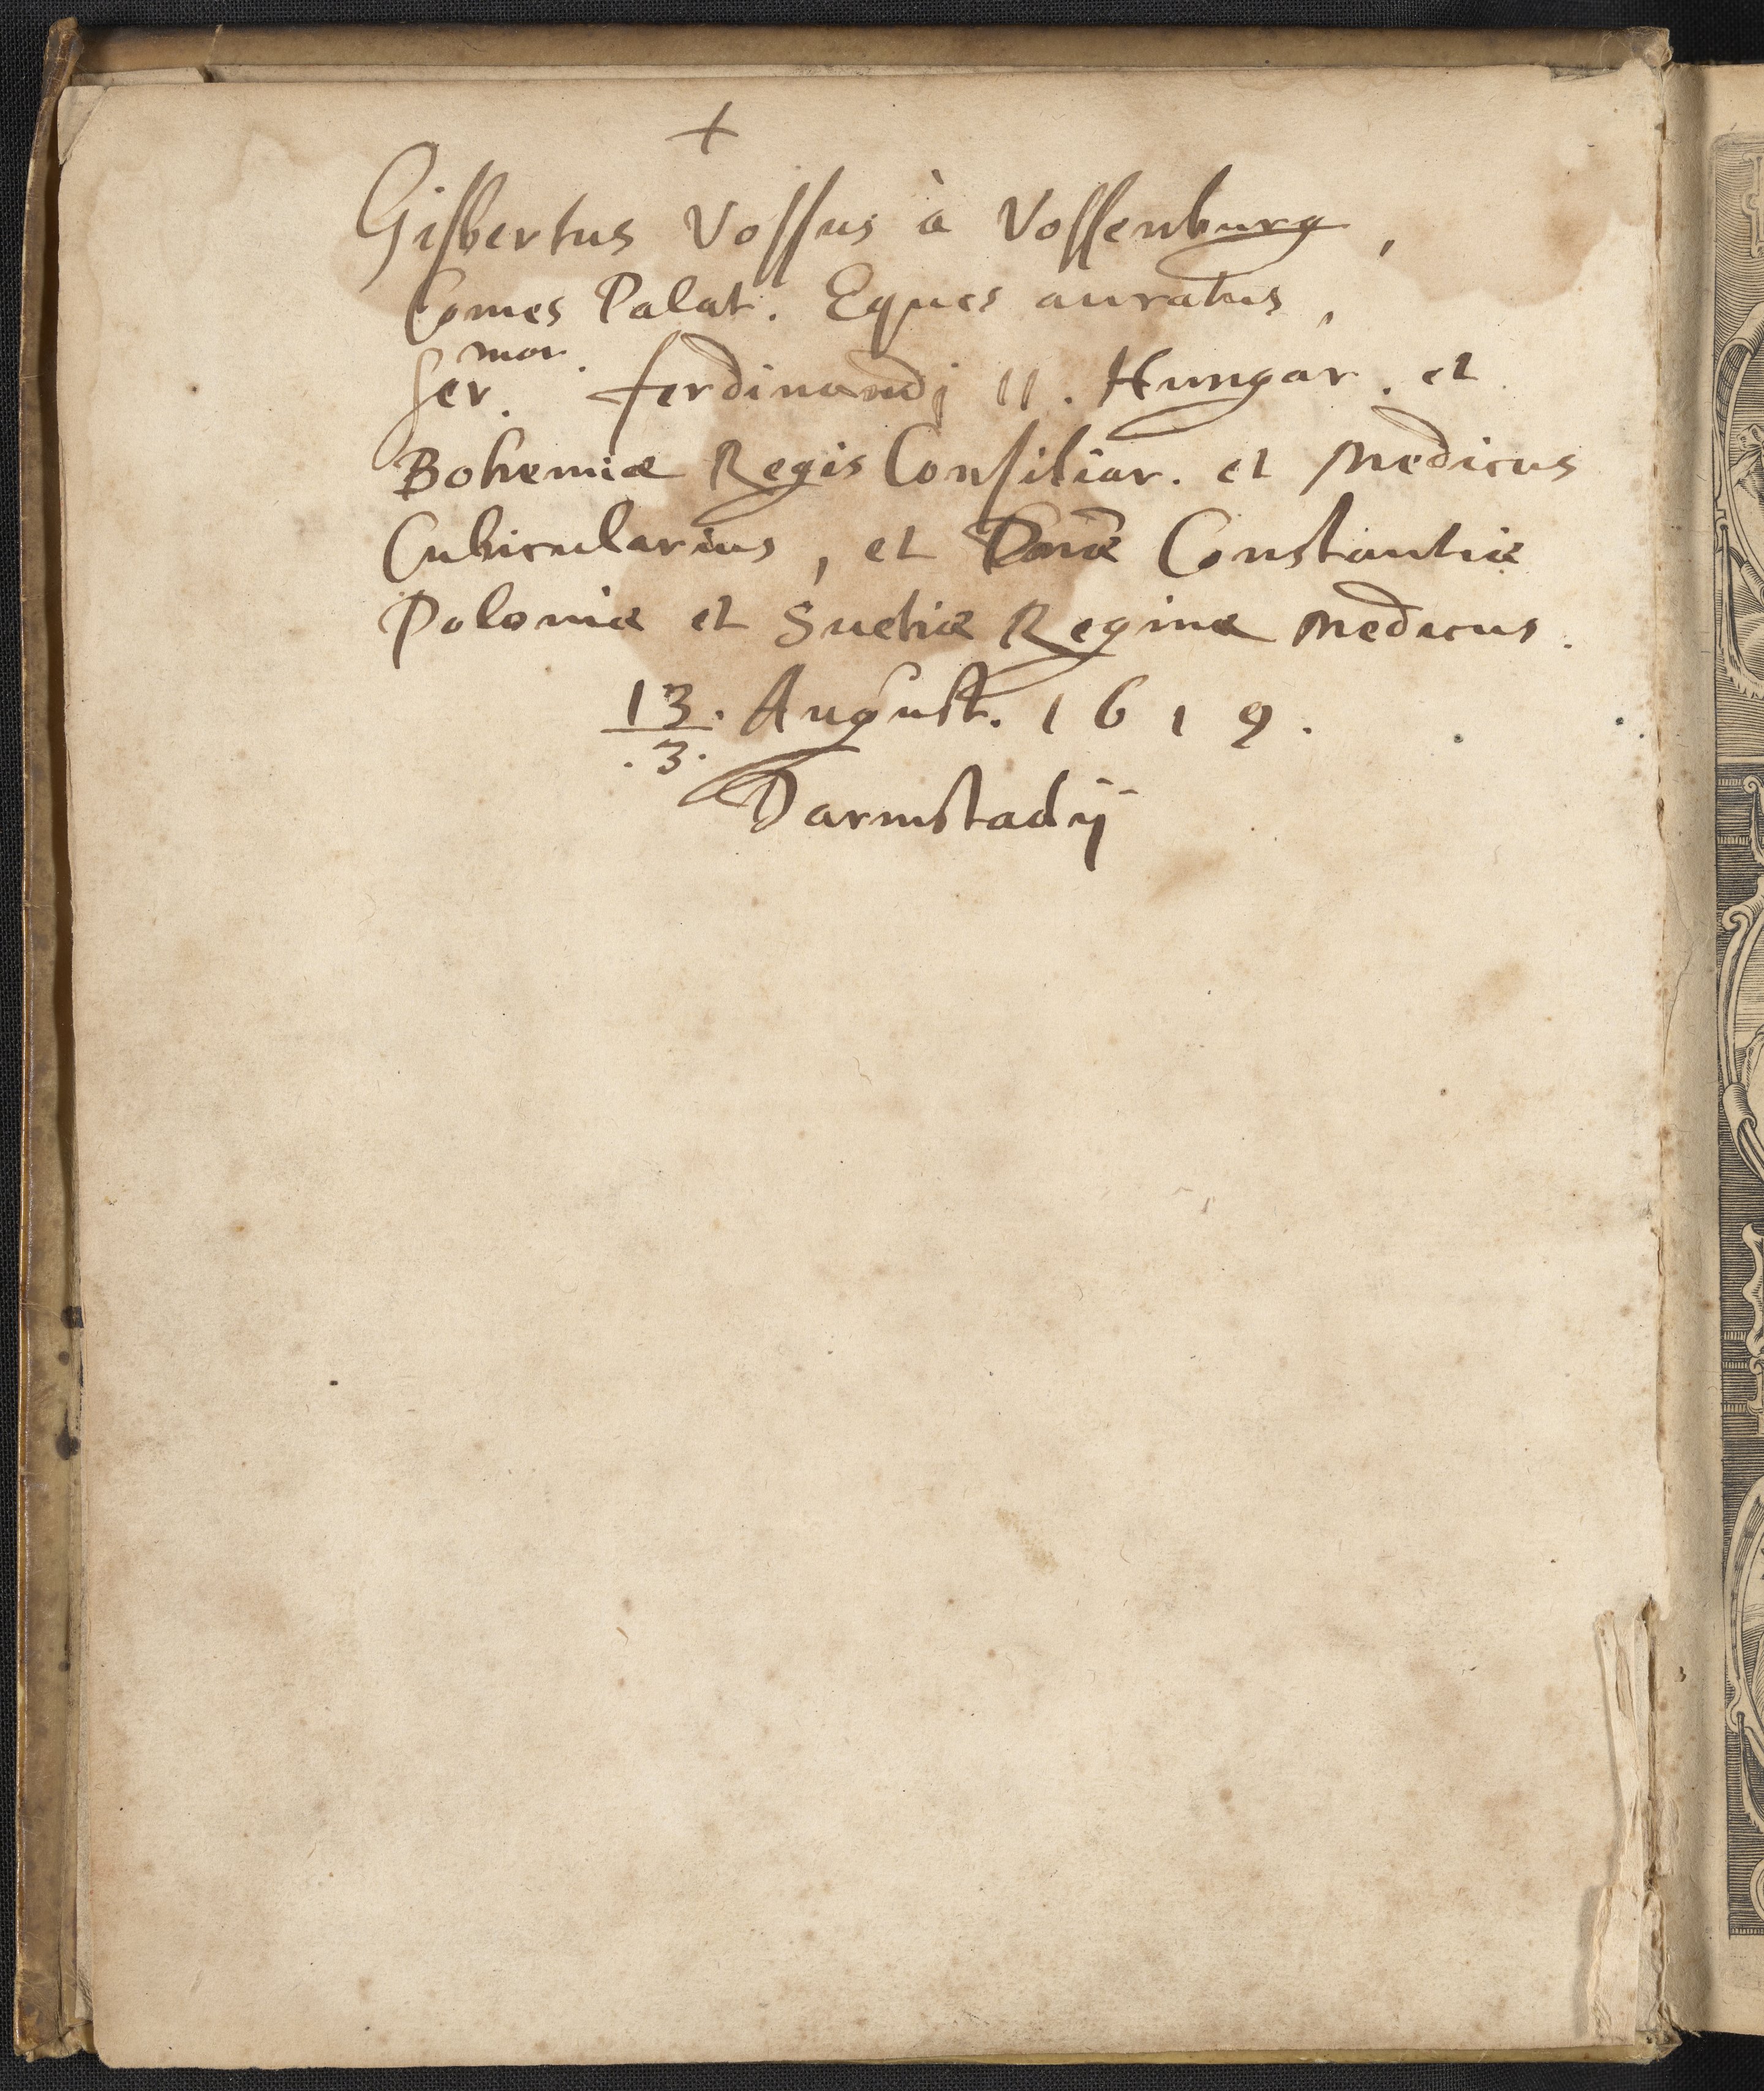 +
Gisbertus Vossus à Vossenburg,
Comes Palat. Eques auratus,
Ser.mor. ferdinandj II. Hungar. et
Bohemiæ Regis Consiliar. et Medicus
Cubicularius, et Dnæ Constantiæ
Poloniæ et Suetiæ Reginæ Medicus.
13. August. 1619.
.3.
Darmstadij